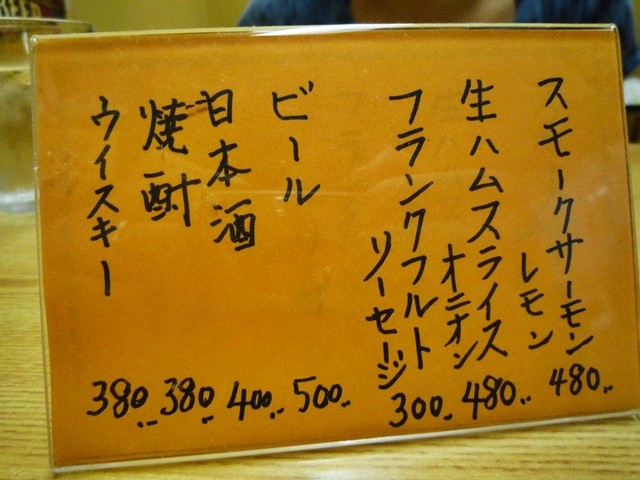 スモークサーモン
レモン
480..
生ハムスライス
オニオン
480..
フランクフルト
ソーセージ
300..
ビール
500..
日本酒
400..
焼酎
380..
ウイスキー
380..